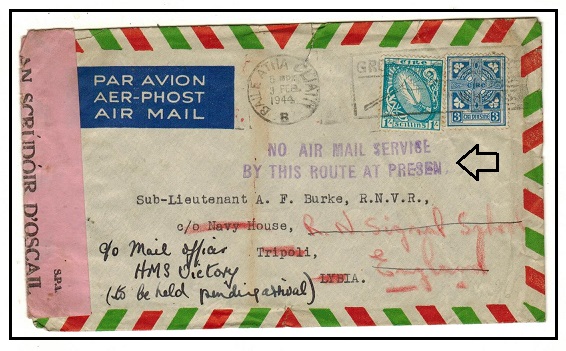 AN SCRÚDÓIR D'OSCAIL
S.P.1.
PAR AVION
AER-PHOST
AIR MAIL
BAILE ÁTHA CLIATH
3 FEB
1944
B
ÉIRE
1/- SCILLING 1/-
3 3
NO AIR MAIL SERVICE
BY THIS ROUTE AT PRESEN
Sub-Lieutenant A. F. Burke, R.N.V.R.,
c/o Navy House, R N Signal
Tripoli,
England
LYBIA.
c/o Mail officer
HMS Victory
(to be held pending arrival)